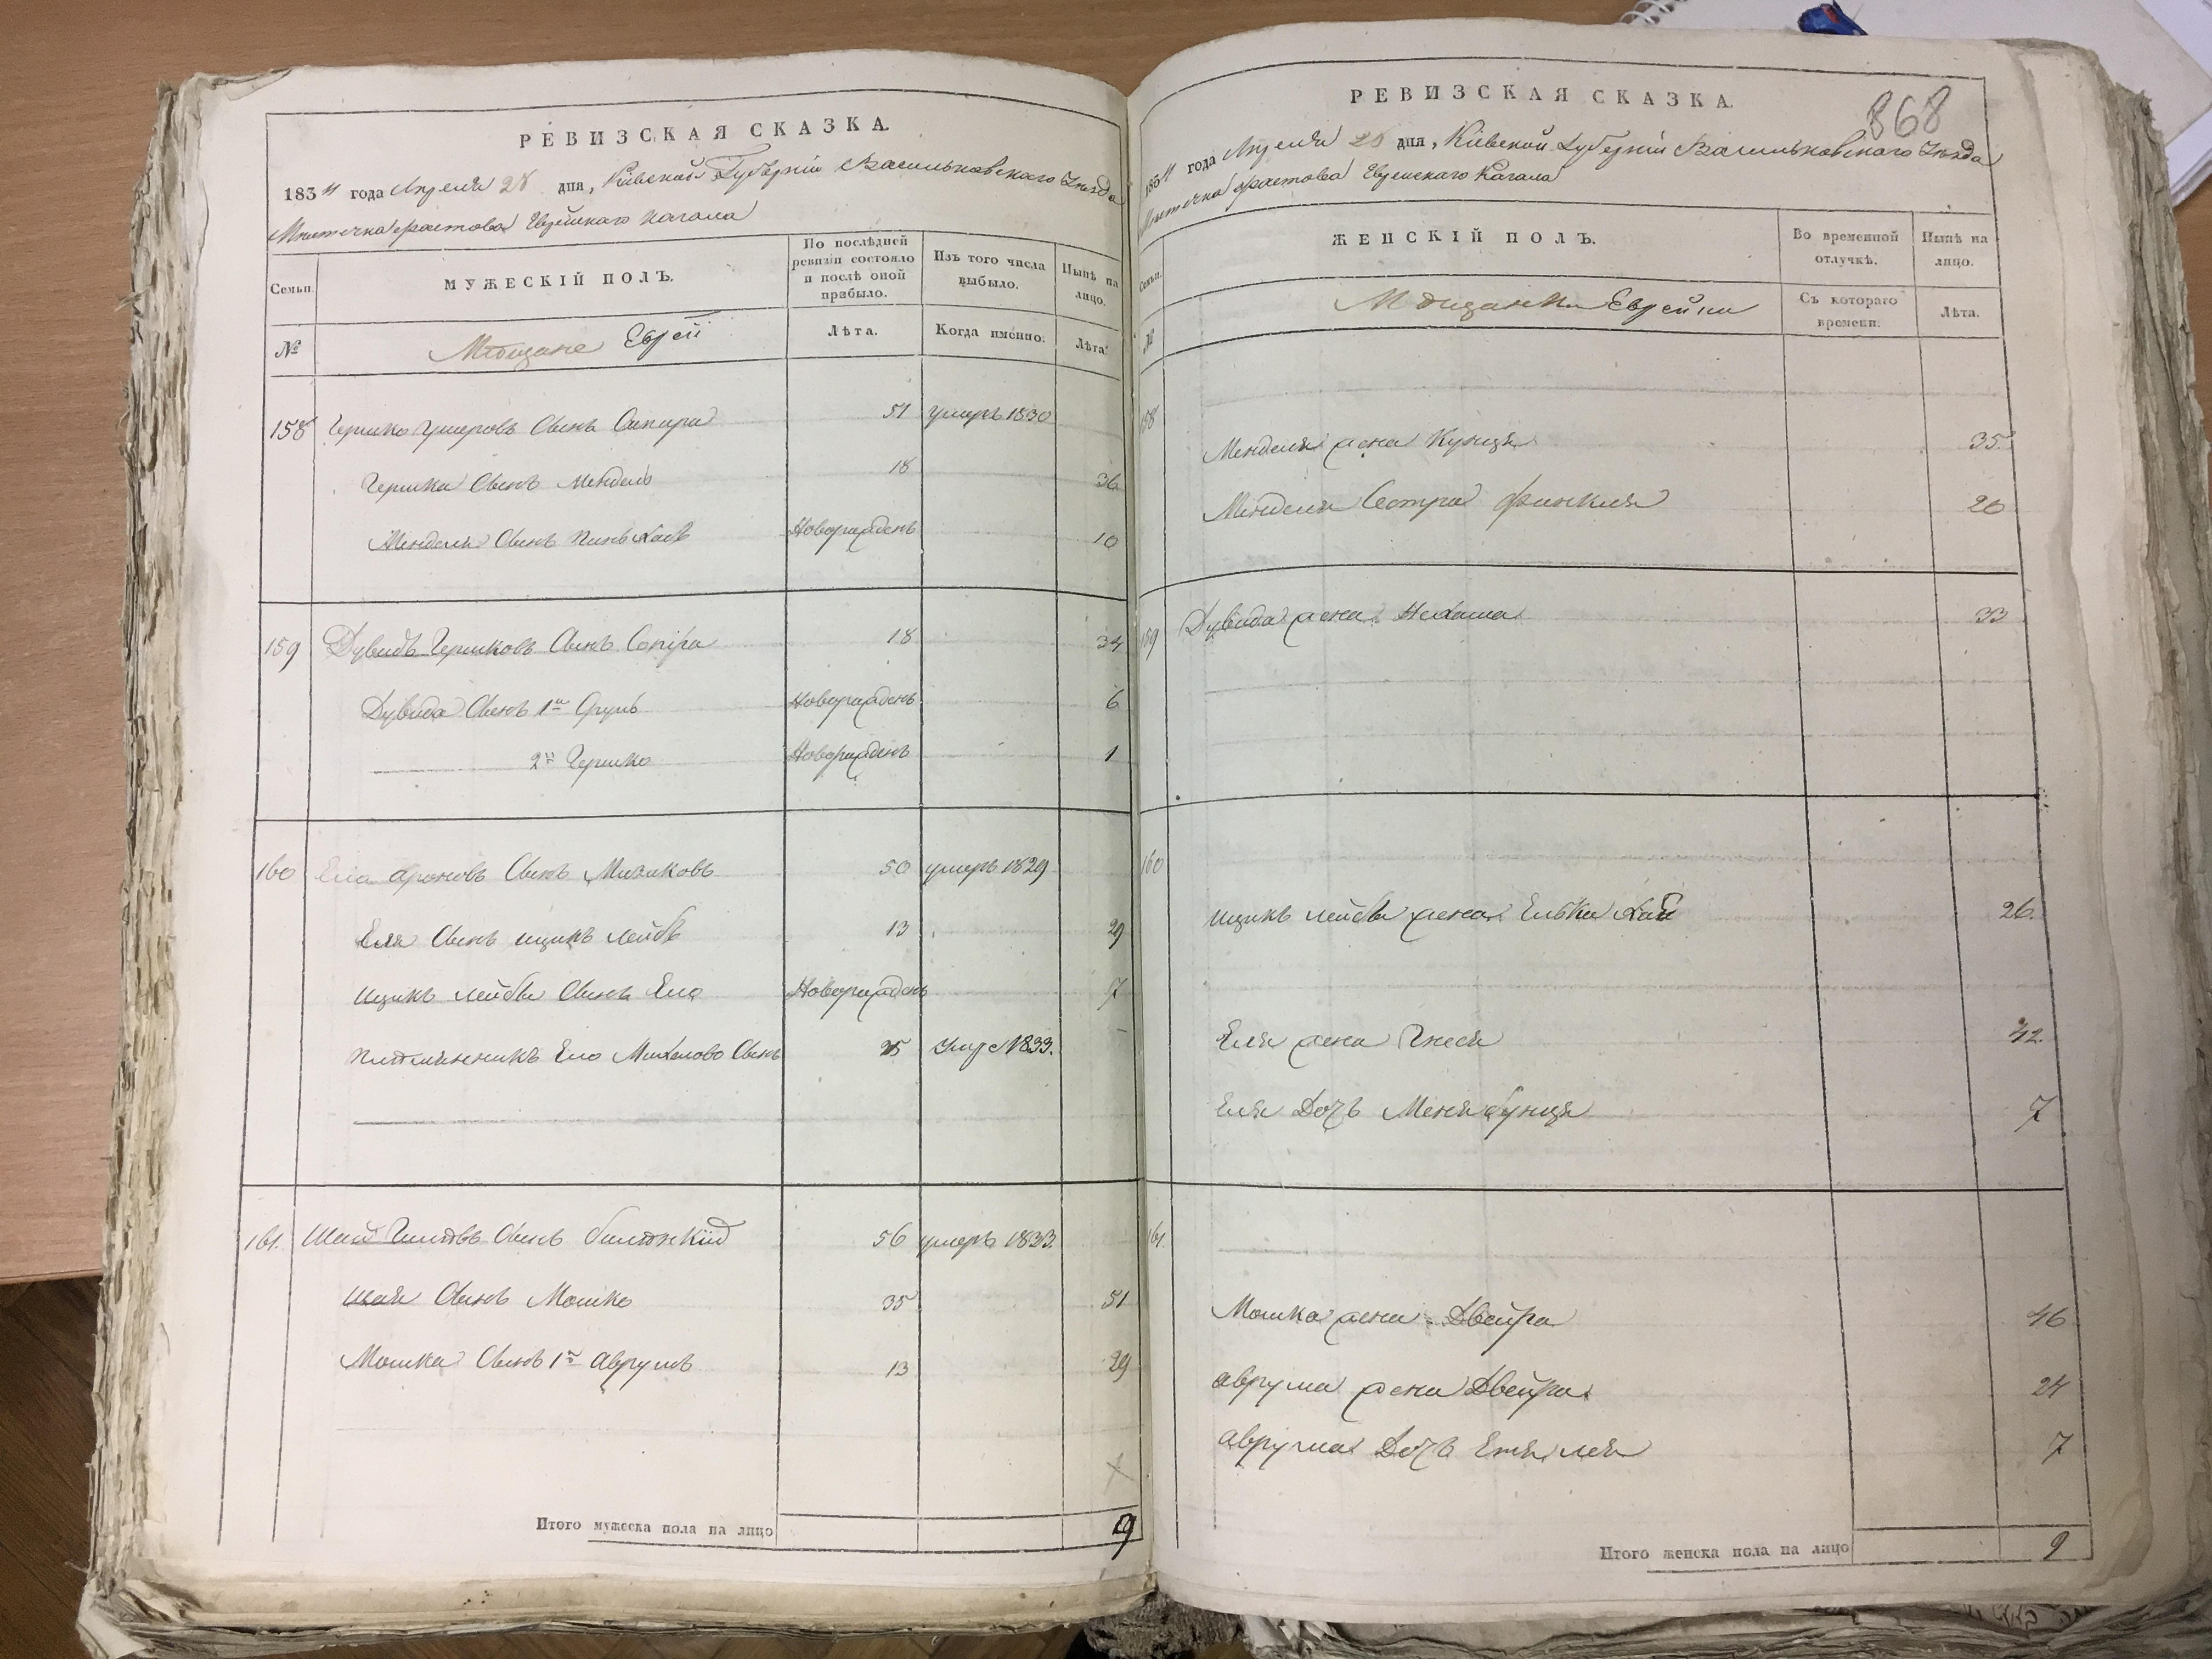 РЕВИЗСКАЯ СКАЗКА.
1834 года Апреля 28 дня, Кіевской Губерніи Васильковскаго Уезда
Местечка Фастова Еврейскаго Кагала
Семьи.
МУЖЕСКІЙ ПОЛЪ.
По послѣдней ревизіи состояло и послѣ оной прибыло.
Изъ того числа выбыло.
Нынѣ на лицо.
№
Мѣщане Евреи
Лѣта.
Когда именно.
Лѣта.
158 Гершко Ушеровъ Сынъ Сапира 51 умеръ 1830
Гершка Сынъ Мендель 18 36
Менделя Сынъ Пинъхасъ Новорожденъ 10
159 Дувидъ Гершковъ Сынъ Сопіра 18 34
Дувида Сынъ 1й Сруль Новорожденъ 6
2й Гершко Новорожденъ 1
160 Ела Ароновъ Сынъ 50 умеръ 1829
Еля Сынъ Ицикъ Лейбъ 13 29
Ицикъ Лейбы Сынъ Ело Новорожденъ 7
Племянникъ Ело Михелово Сынъ 25 1833.
161. Шая Сынъ 56 умеръ 1833.
Шаи Сынъ Мошко 35 51
Мошка Сынъ 1й Аврумъ 13 29
Итого мужеска пола на лицо 9
868
РЕВИЗСКАЯ СКАЗКА.
1834 года Апреля 28 дня, Кіевской Губерніи Васильковскаго Уезда
Местечка Фастова Еврейскаго Кагала
Семьи.
ЖЕНСКІЙ ПОЛЪ.
Во временной отлучкѣ.
Нынѣ на лицо.
№
Мѣщанки Еврейки
Съ котораго времени.
Лѣта.
158
Менделя жена Куиця 35.
Менделя Сестра Финкля 20
159 Дувида жена Нехама 33
160
Ицикъ Лейбы жена Елька Хая 26.
Еля жена Гнеся 42.
Еля Дочь Меня Бунця 7
161.
Мошка жена Двейра 46
Аврума жена Двейра 24
Аврума Дочь Етя Лея 7
Итого женска пола на лицо 9